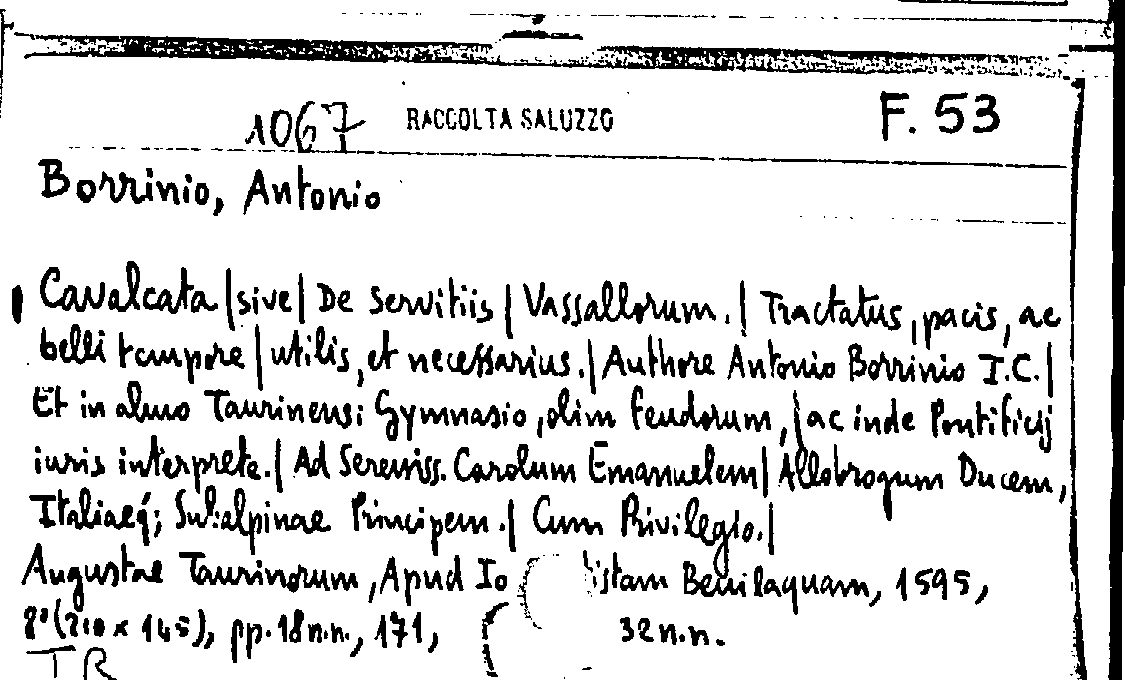 1067 RACCOLTA SALUZZO F. 53
Borrinio, Antonio
Cavalcata | sive | De Servitiis | Vassallorum. | Tractatus, pacis, ac
belli tempore | utilis, et necessarius. | Authore Antonio Borrinio I.C. |
Et in almo Taurinensi Gymnasio, olim feudorum, | ac inde Pontificij
iuris interprete. | Ad Sereniss. Carolum Emanuelem | Allobrogum Ducem,
Italiaeq́; Subalpinae Principem. | Cum Privilegio. |
Augustae Taurinorum, Apud Io istam Bevilaquam, 1595,
8° (210 x 145), pp. 18 n.n., 171, 32 n.n.